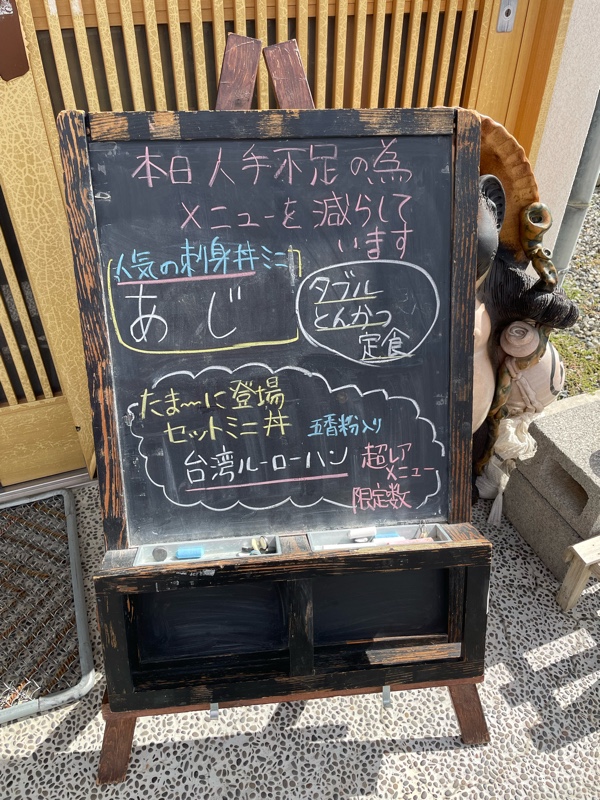 本日人手不足の為
メニューを減らして
います
人気の刺身丼ミニ
あじ
ダブル
とんかつ
定食
たま〜に登場
セットミニ丼
五香粉入り
台湾ルーローハン
超レア
メニュー
限定数